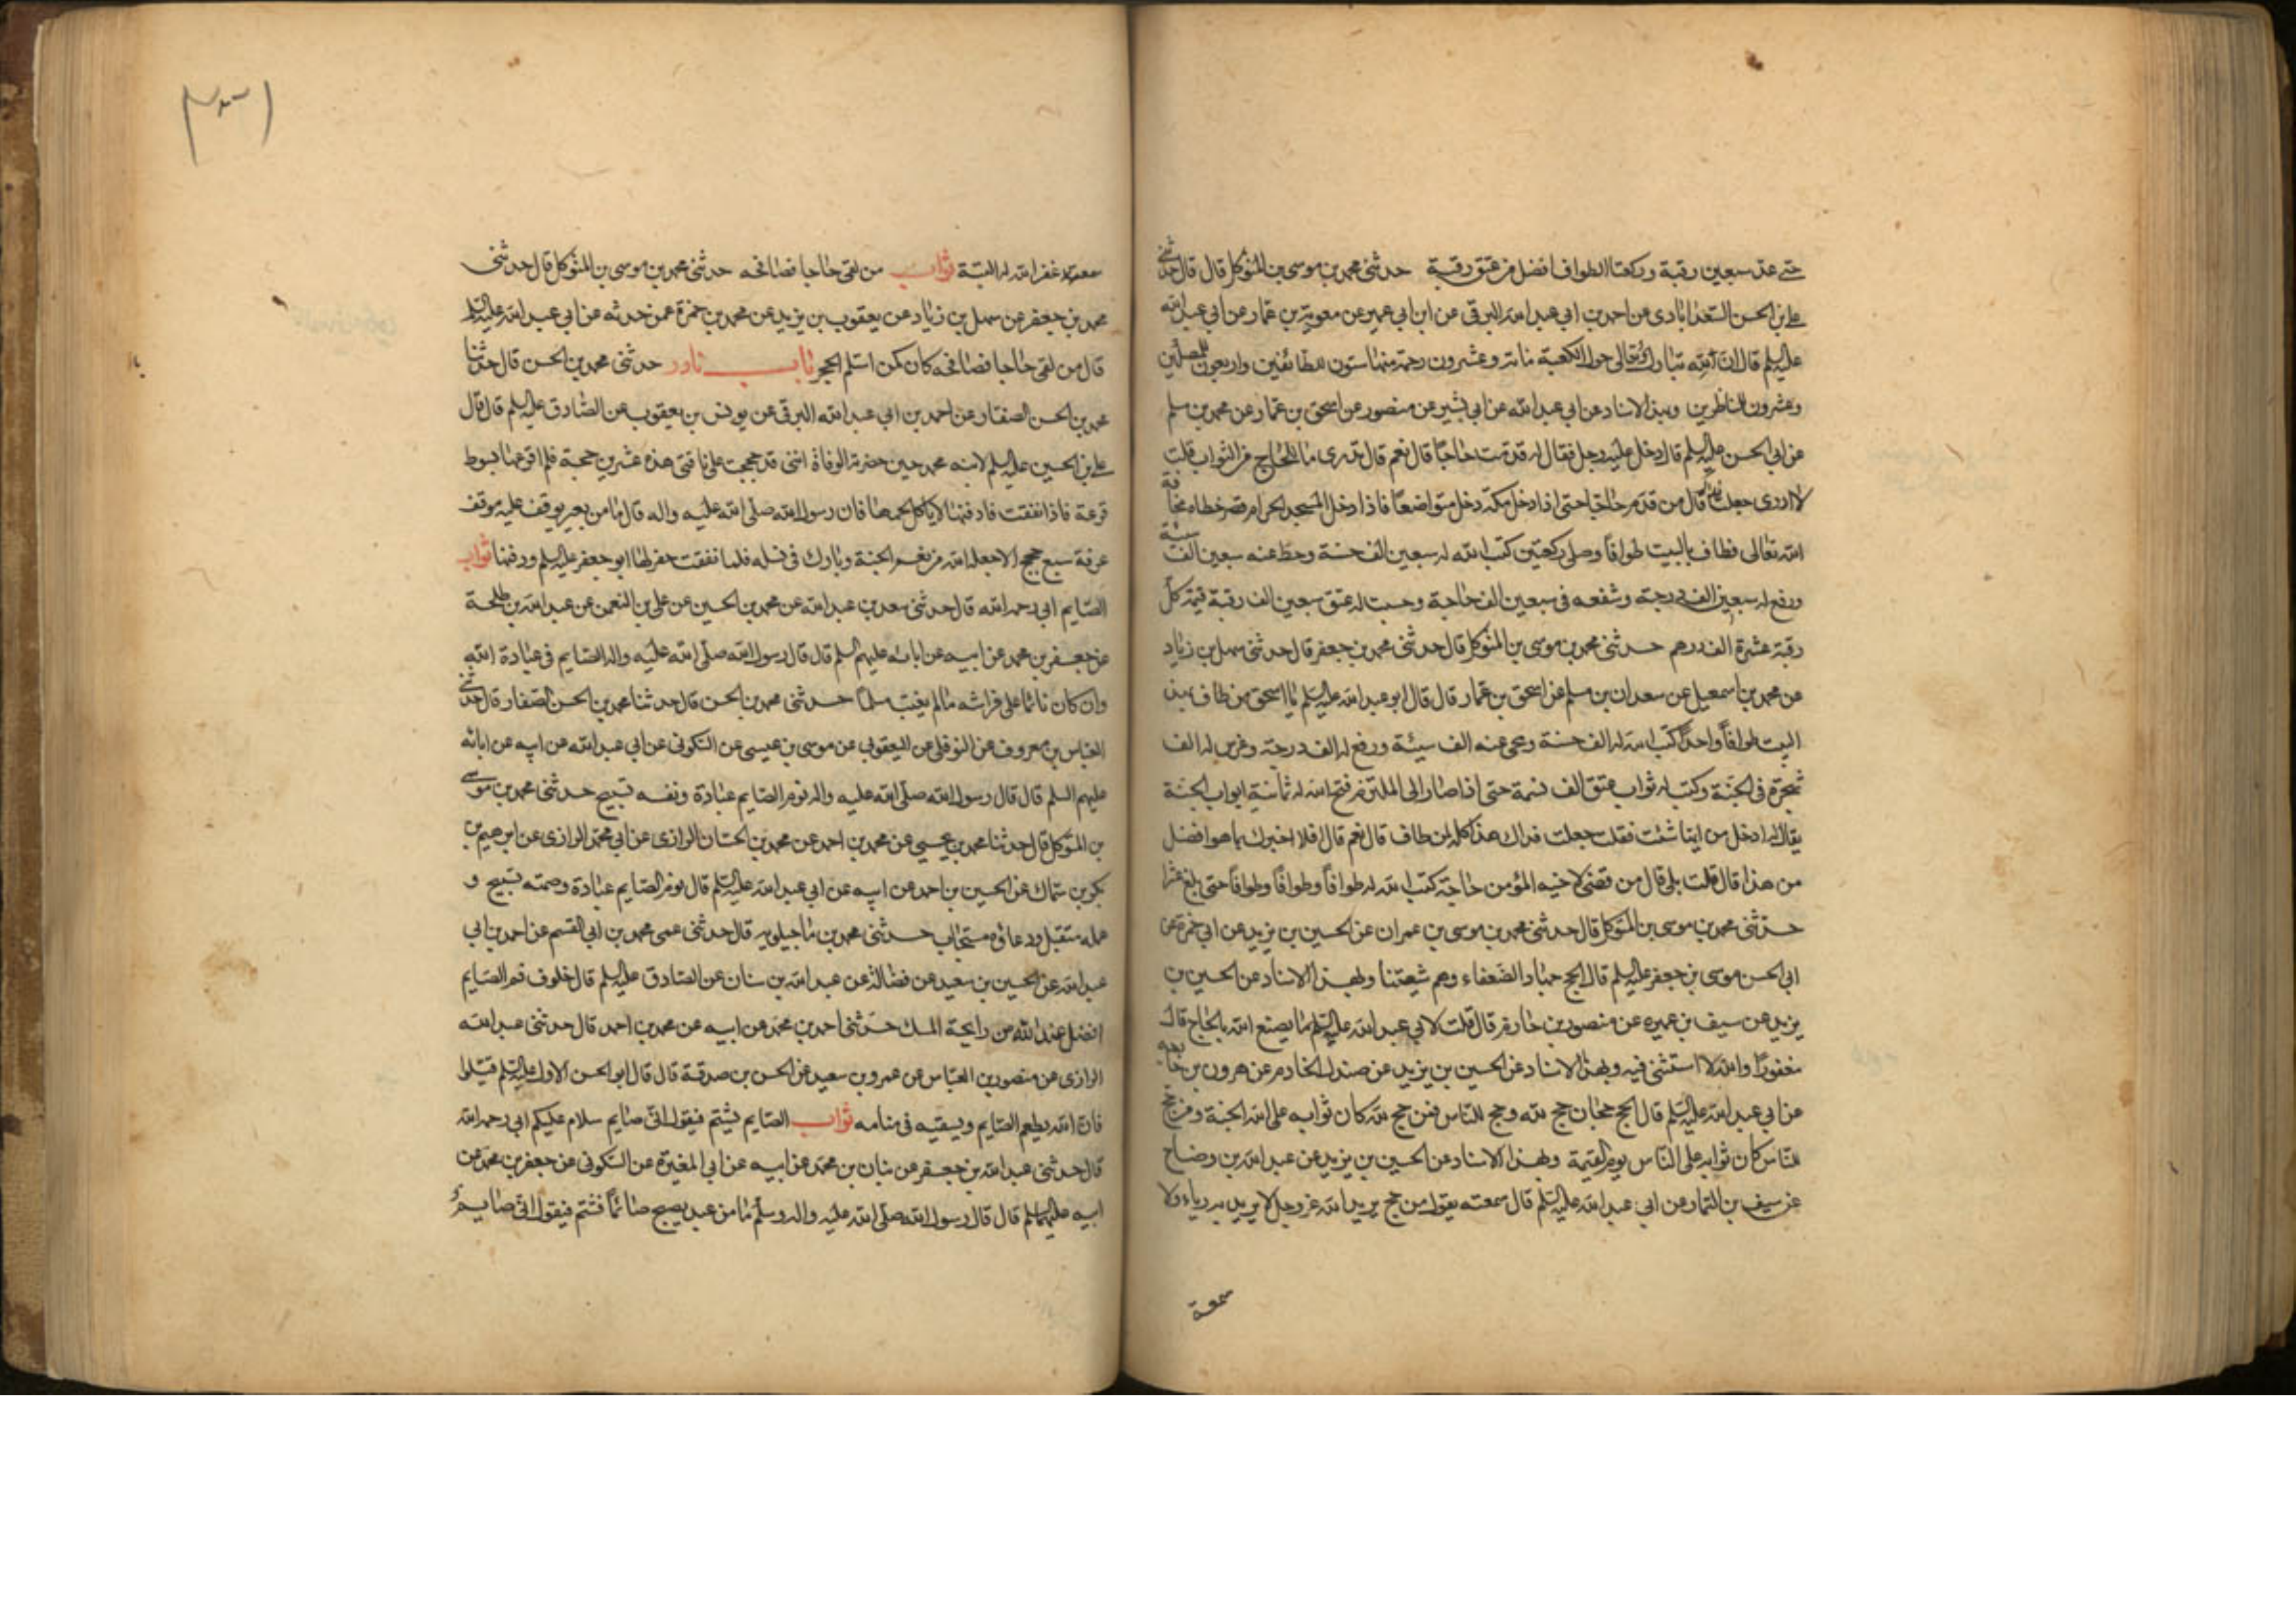 حتى عد سبعين رقبة وركعتا الطواف افضل من عتق رقبة حدثنى محمد بن موسى بن المتوكل قال قال حدثنى
على بن الحسن السعدابادى عن احمد بن ابى عبد الله البرقى عن ابن ابى عمير عن معوية بن عمار عن ابى عبد الله
عليه السلم قال ان الله تبارك وتعالى حول الكعبة مائة وعشرون رحمة منها ستون للطائفين واربعون للمصلين
وعشرون للناظرين وبهذا الاسناد عن ابى عبد الله عن ابى بشير عن منصور عن اسحق بن عمار عن محمد بن مسلم
عن ابى الحسن عليه السلم قال دخل عليه رجل فقال له قدمت حاجا قال نعم قال تدرى ما للحاج من الثواب قلت
لا ادرى جعلت فداك قال من قدم حاجا حتى اذا دخل مكة دخل متواضعا فاذا دخل المسجد الحرام قصر خطاه مخافة
الله تعالى فطاف بالبيت طوافا وصلى ركعتين كتب الله له سبعين الف حسنة وحط عنه سبعين الف سيئة
ورفع له سبعين الف درجة وشفعه فى سبعين الف حاجة وحسبت له عتق سبعين الف رقبة قيمة كل
رقبة عشرة الف درهم حدثنى محمد بن موسى بن المتوكل قال حدثنى محمد بن جعفر قال حدثنى سهل بن زياد
عن محمد بن اسمعيل عن سعدان بن مسلم عن اسحق بن عمار قال قال ابو عبد الله عليه السلم يا اسحق من طاف بهذا
البيت طوافا واحدا كتب الله له الف حسنة ومحى عنه الف سيئة ورفع له الف درجة وغرس له الف
شجرة فى الجنة وكتب له ثواب عتق الف نسمة حتى اذا صار الى الملتزم فتح الله له ثمانية ابواب الجنة
يقال له ادخل من ايها شئت فقلت جعلت فداك هذا كله لمن طاف قال نعم قال افلا اخبرك بما هو افضل
من هذا قال قلت بلى قال من قضى لاخيه المؤمن حاجة كتب الله له طوافا وطوافا وطوافا حتى بلغ عشرا
حدثنى محمد بن موسى بن المتوكل قال حدثنى محمد بن موسى بن عمران عن الحسين بن يزيد عن ابى حمزة عن
ابى الحسن موسى بن جعفر عليه السلم قال الحج جهاد الضعفاء وهم شيعتنا وبهذا الاسناد عن الحسين بن
يزيد عن سيف بن عميرة عن منصور بن حازم قال قلت لابى عبد الله عليه السلم ما يصنع الله بالحاج قال
مغفورا والله لا استثنى فيه وبهذا الاسناد عن الحسين بن يزيد عن صندل الخادم عن هرون بن خارجه
عن ابى عبد الله عليه السلم قال الحج حجان حج لله وحج للناس فمن حج لله كان ثوابه على الله الجنة ومن حج
للناس كان ثوابه على الناس يوم القيمة وبهذا الاسناد عن الحسين بن يزيد عن عبد الله بن وضاح
عن سيف بن التمار عن ابى عبد الله عليه السلم قال سمعته يقول من حج يريد الله عز وجل لا يريد به رياء ولا
سمعة
سمعة غفر الله له البتة ثواب من لقى حاجا فصافحه حدثنى محمد بن موسى بن المتوكل قال حدثنى
محمد بن جعفر عن سهل بن زياد عن يعقوب بن يزيد عن محمد بن حمزة عمن حدثه عن ابى عبد الله عليه السلم
قال من لقى حاجا فصافحه كان كمن استلم الحجر باب نادر حدثنى محمد بن الحسن قال حدثنا
محمد بن الحسن الصفار عن احمد بن ابى عبد الله البرقى عن يونس بن يعقوب عن الصادق عليه السلم قال قال
على بن الحسين عليه السلم لابنه محمد حين حضرته الوفاة اننى قد حججت على ناقتى هذه عشرين حجة فلم اقرعها بسوط
قرعة فاذا نفقت فادفنها لا ياكل لحمها فان رسول الله صلى الله عليه واله قال ما من بعير يوقف عليه موقف
عرفة سبع حجج الا جعله الله من نعم الجنة وبارك فى نسله فلما نفقت حفر لها ابو جعفر عليه السلم ودفنها ثواب
الصايم ابى رحمه الله قال حدثنى سعد بن عبد الله عن محمد بن الحسين عن على بن النعمن عن عبد الله بن طلحة
عن جعفر بن محمد عن ابيه عن ابائه عليهم السلم قال قال رسول الله صلى الله عليه واله الصايم فى عبادة الله
وان كان نائما على فراشه ما لم يغيب مسلما حدثنى محمد بن الحسن قال حدثنا محمد بن الحسن الصفار قال حدثنى
العباس بن معروف عن النوفلى عن اليعقوبى عن موسى بن عيسى عن السكونى عن ابى عبد الله عن ابيه عن ابائه
عليهم السلم قال قال رسول الله صلى الله عليه واله نوم الصايم عبادة ونفسه تسبيح حدثنى محمد بن موسى
بن المتوكل قال حدثنا محمد بن يحيى عن محمد بن احمد عن محمد بن الحسان الرازى عن ابى محمد الرازى عن ابرهيم بن
بكر بن سماك عن الحسين بن احمد عن ابيه عن ابى عبد الله عليه السلم قال نوم الصايم عبادة وصمته تسبيح و
عمله متقبل ودعاؤه مستجاب حدثنى محمد بن ماجيلويه قال حدثنى عمى محمد بن ابى القسم عن احمد بن ابى
عبد الله عن الحسين بن سعيد عن فضالة عن عبد الله بن سنان عن الصادق عليه السلم قال خلوف فم الصايم
افضل عند الله من رايحة المسك حدثنى احمد بن محمد عن ابيه عن محمد بن احمد قال حدثنى عبد الله
الرازى عن منصور بن العباس عن عمرو بن سعيد عن الحسن بن صدقة قال قال ابو الحسن الاول عليه السلم قيلوا
فان الله يطعم الصايم ويسقيه فى منامه ثواب الصايم يشتم فيقول انى صايم سلام عليكم ابى رحمه الله
قال حدثنى عبد الله بن جعفر عن بنان بن محمد عن ابيه عن ابى المغيرة عن السكونى عن جعفر بن محمد عن
ابيه عليهما السلم قال قال رسول الله صلى الله عليه واله وسلم ما من عبد يصبح صائما فشتم فيقول انى صايم